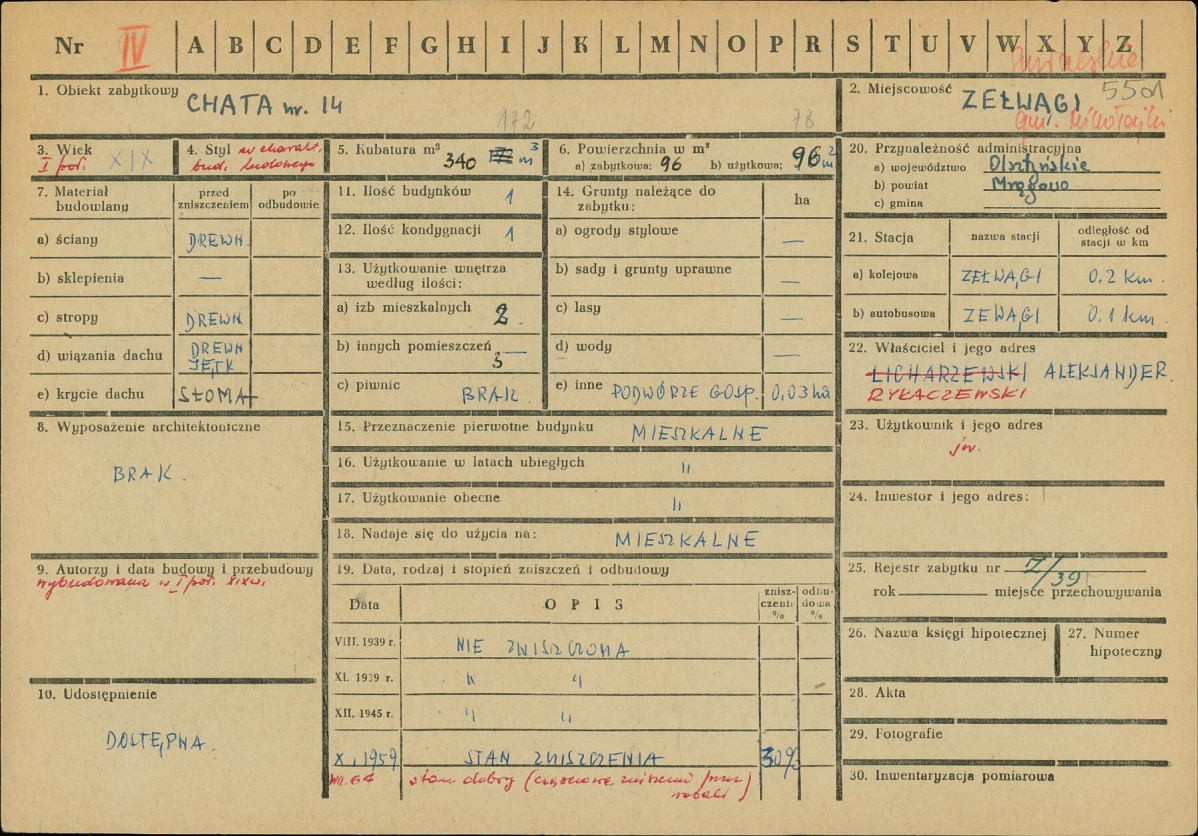 Nr IV A B C D E F G H I J K L M N O P R S T U V W X Y Z
Suwalskie
1. Obiekt zabytkowy CHATA nr. 14
2. Miejscowość ZEŁWĄGI 5501
gm. Mikołajki
172 78
3. Wiek I poł. XIX
4. Styl w charakt. bud. ludowego
5. Kubatura m³ 340 172 m³
6. Powierzchnia w m²
a) zabytkowa: 96 b) użytkowa: 96 m²
7. Materiał budowlany
przed zniszczeniem
po odbudowie
a) ściany DREWN.
b) sklepienia —
c) stropy DREWN
d) wiązania dachu DREWN JĘTK.
e) krycie dachu SŁOMA
8. Wyposażenie architektoniczne
BRAK.
9. Autorzy i data budowy i przebudowy
wybudowana w I poł. XIX w.
10. Udostępnienie
DOSTĘPNA.
11. Ilość budynków 1
12. Ilość kondygnacji 1
13. Użytkowanie wnętrza według ilości:
a) izb mieszkalnych 2.
b) innych pomieszczeń — 3
c) piwnic BRAK.
14. Grunty należące do zabytku: ha
a) ogrody stylowe —
b) sady i grunty uprawne —
c) lasy —
d) wody —
e) inne PODWÓRZE GOSP. 0,03 ha
15. Przeznaczenie pierwotne budynku MIESZKALNE
16. Użytkowanie w latach ubiegłych "
17. Użytkowanie obecne "
18. Nadaje się do użycia na: MIESZKALNE
19. Data, rodzaj i stopień zniszczeń i odbudowy
Data OPIS zniszczenia % odbudowa %
VIII. 1939 r. NIE ZNISZCZONA
XI. 1939 r. " "
XII. 1945 r. " "
X. 1959 STAN ZNISZCZENIA 30%
VIII. 64 stan dobry (częściowo zniszcz. przez robaki)
20. Przynależność administracyjna
a) województwo Olsztyńskie
b) powiat Mrągowo
c) gmina
21. Stacja
nazwa stacji
odległość od stacji w km
a) kolejowa ZEŁWĄGI 0.2 km.
b) autobusowa ZEWĄGI 0.1 km.
22. Właściciel i jego adres
LICHARZEWSKI ALEKSANDER.
RYKACZEWSKI
23. Użytkownik i jego adres
jw.
24. Inwestor i jego adres:
25. Rejestr zabytku nr 7/39
rok miejsce przechowywania
26. Nazwa księgi hipotecznej
27. Numer hipoteczny
28. Akta
29. Fotografie
30. Inwentaryzacja pomiarowa